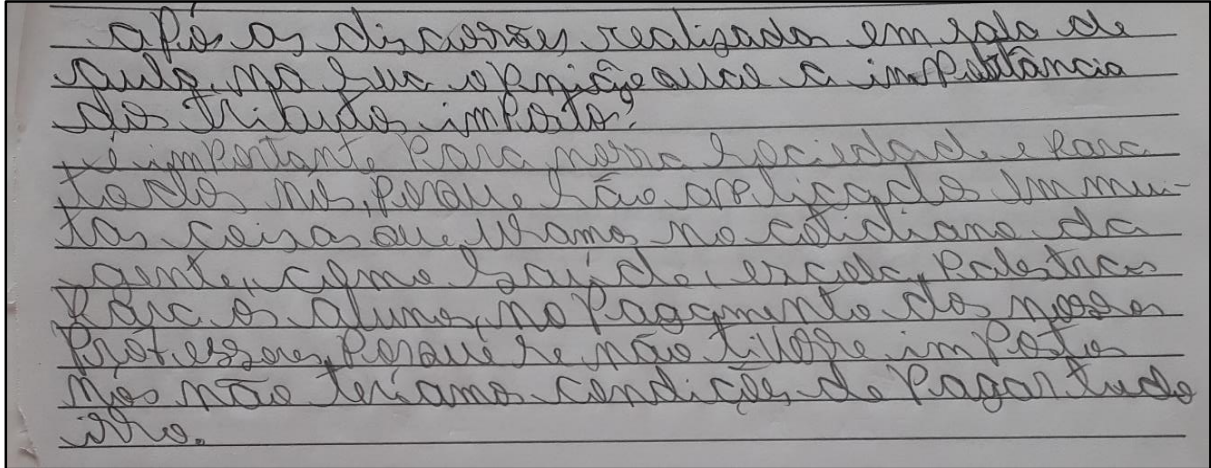 após as discorsões realizada em sala de
aula, na sua opinião qual a importância
dos tributos imposto?
é importante para nossa sociedade e para
todos nós, porque são aplicados em mui-
tas coisas que usamos no cotidiano da
gente, como saúde, escola, palestras
para os alunos, no pagamento dos nossos
professores, porque se não tivesse impostos
nós não teríamos condições de pagar tudo
isso.